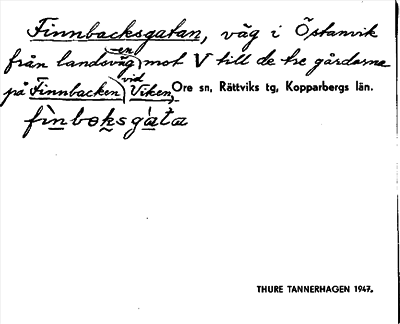 Finnbacksgatan, väg i Östanvik
från landsvägen mot V till de tre gårdarna
på Finnbacken vid Viken, Ore sn, Rättviks tg, Kopparbergs län.
THURE TANNERHAGEN 1947.